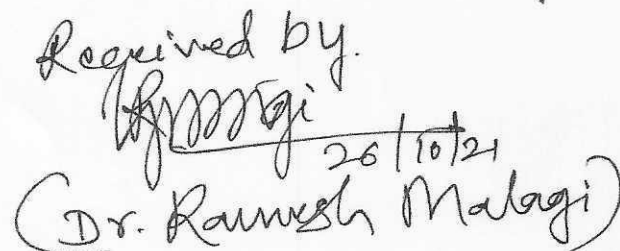 Received by.
26/10/21
(Dr. Ramesh Malagi)